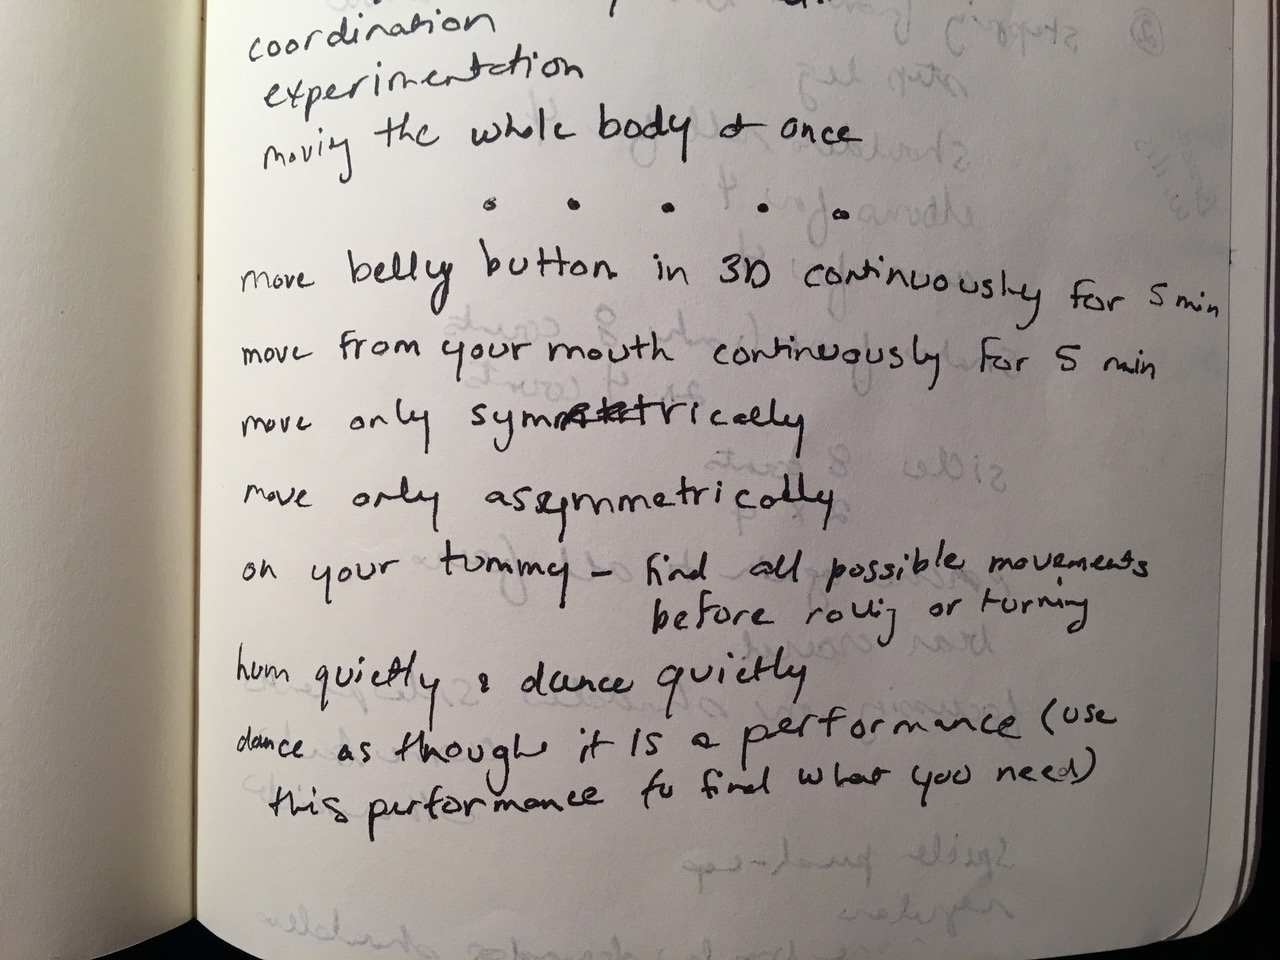 coordination
experimentation
moving the whole body at once
• • • • •
move belly button in 3D continuously for 5 min
move from your mouth continuously for 5 min
move only symmetrically
move only assymmetrically
on your tummy – find all possible movements
before rolling or turning
hum quietly & dance quietly
dance as though it is a performance (use
this performance to find what you need)